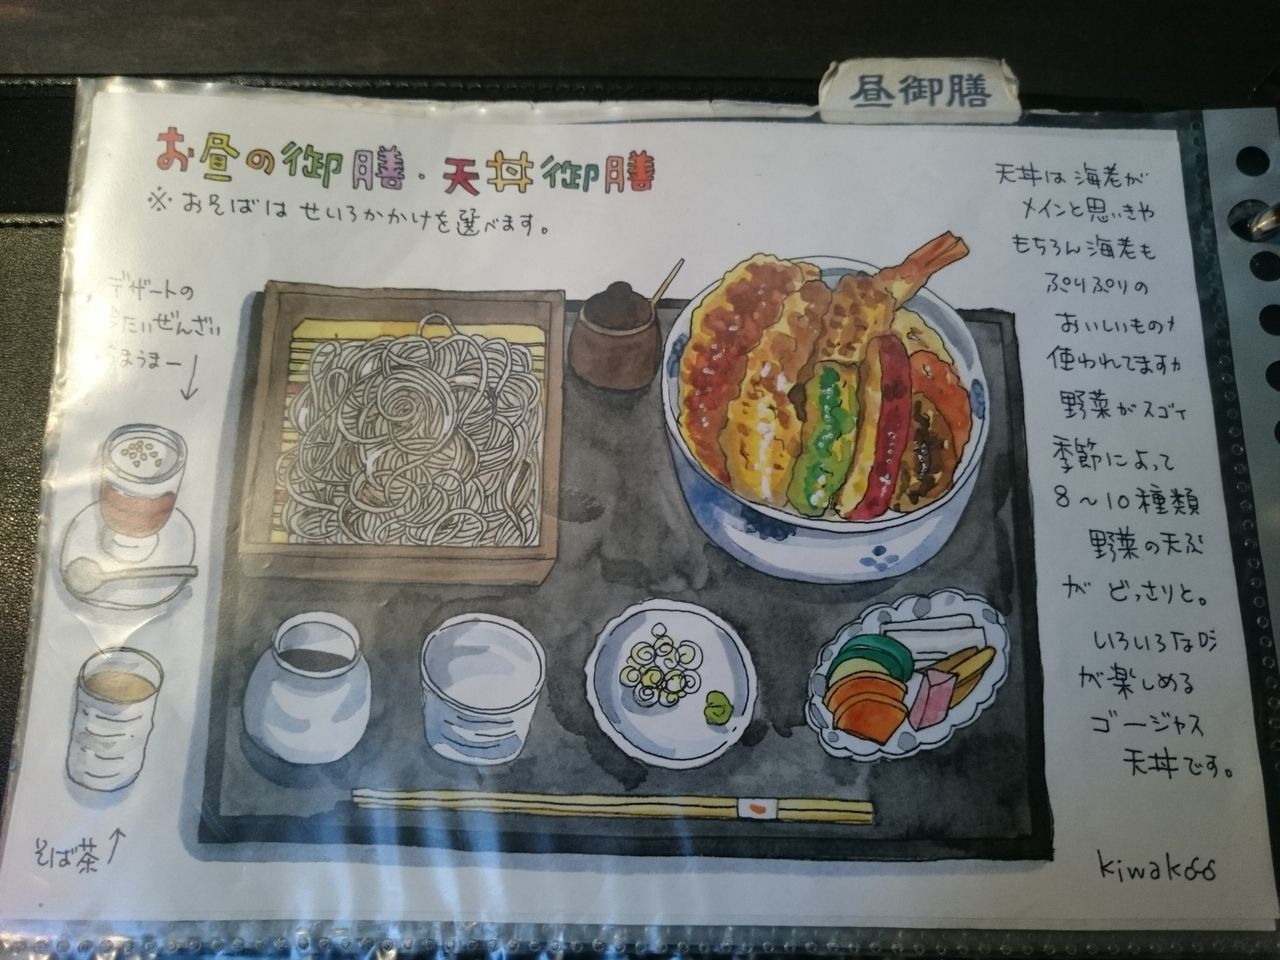 昼御膳
お昼の御膳・天丼御膳
※おそばは せいろかかけを選べます。
天丼は海老が
メインと思いきや
もちろん海老も
ぷりぷりの
おいしいもの
使われてます
野菜がスゴイ
季節によって
8〜10種類
野菜の天ぷ
が どっさりと。
いろいろな
が楽しめる
ゴージャス
天丼です。
デザートの
冷たいぜんざい
うまうまー
そば茶
kiwakoo